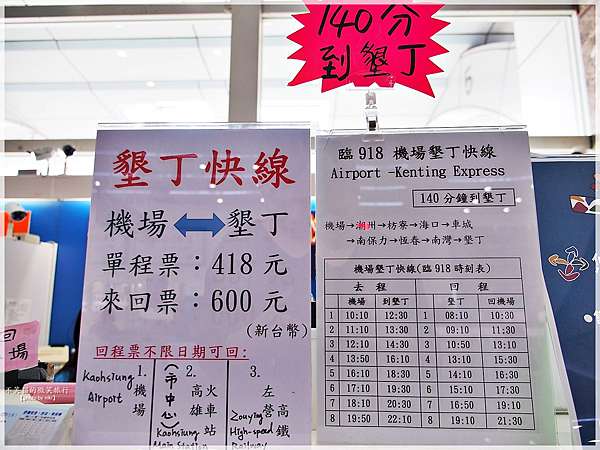 140分
到墾丁
墾丁快線
機場⟷墾丁
單程票：418 元
來回票：600 元
(新台幣)
回程票不限日期可回：
Kaohsiung Airport
1. 機場
2. (市中心) 高雄火車站
Kaohsiung Main Station
3. 左營高鐵
Zuoying High-speed Railway
回
場
臨 918 機場墾丁快線
Airport -Kenting Express
140 分鐘到墾丁
機場→潮州→枋寮→海口→車城
→南保力→恆春→南灣→墾丁
機場墾丁快線(臨 918 時刻表)
去 程 回 程
機場 到墾丁 墾丁 回機場
1 10:10 12:30 1 08:10 10:30
2 11:10 13:30 2 09:10 11:30
3 12:30 14:50 3 10:50 13:10
4 13:50 16:10 4 13:10 15:30
5 16:10 18:30 5 14:10 16:30
6 17:10 19:30 6 15:10 17:30
7 18:10 20:30 7 16:50 19:10
8 19:50 22:10 8 19:10 21:30